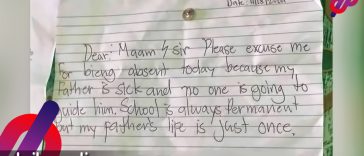 Date:
Dear: Maam / sir Please excuse me
for bieng absent today because my
father is sick and no one is going to
guide him. School is always Permanent
but my father's life is just once.